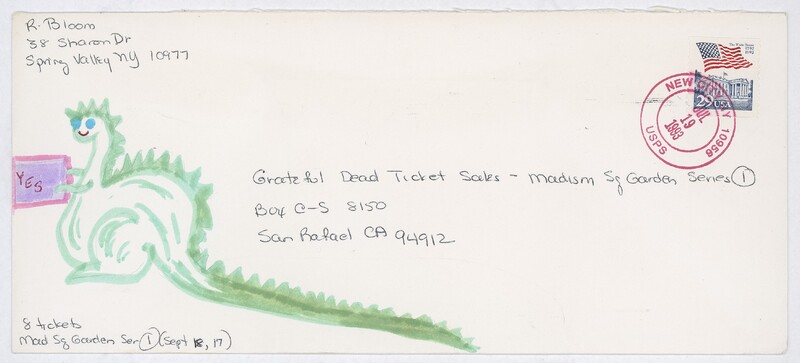 R. Bloom
38 Sharon Dr
Spring Valley NY 10977
The White House
1792 1992
29 USA
NEW CITY NY 10956
JUL
19
1993
USPS
YES
Grateful Dead Ticket Sales - Madison Sq Garden Series ①
Box C-S 8150
San Rafael CA 94912
8 tickets
Mad Sq Garden Ser ① (Sept 16, 17)